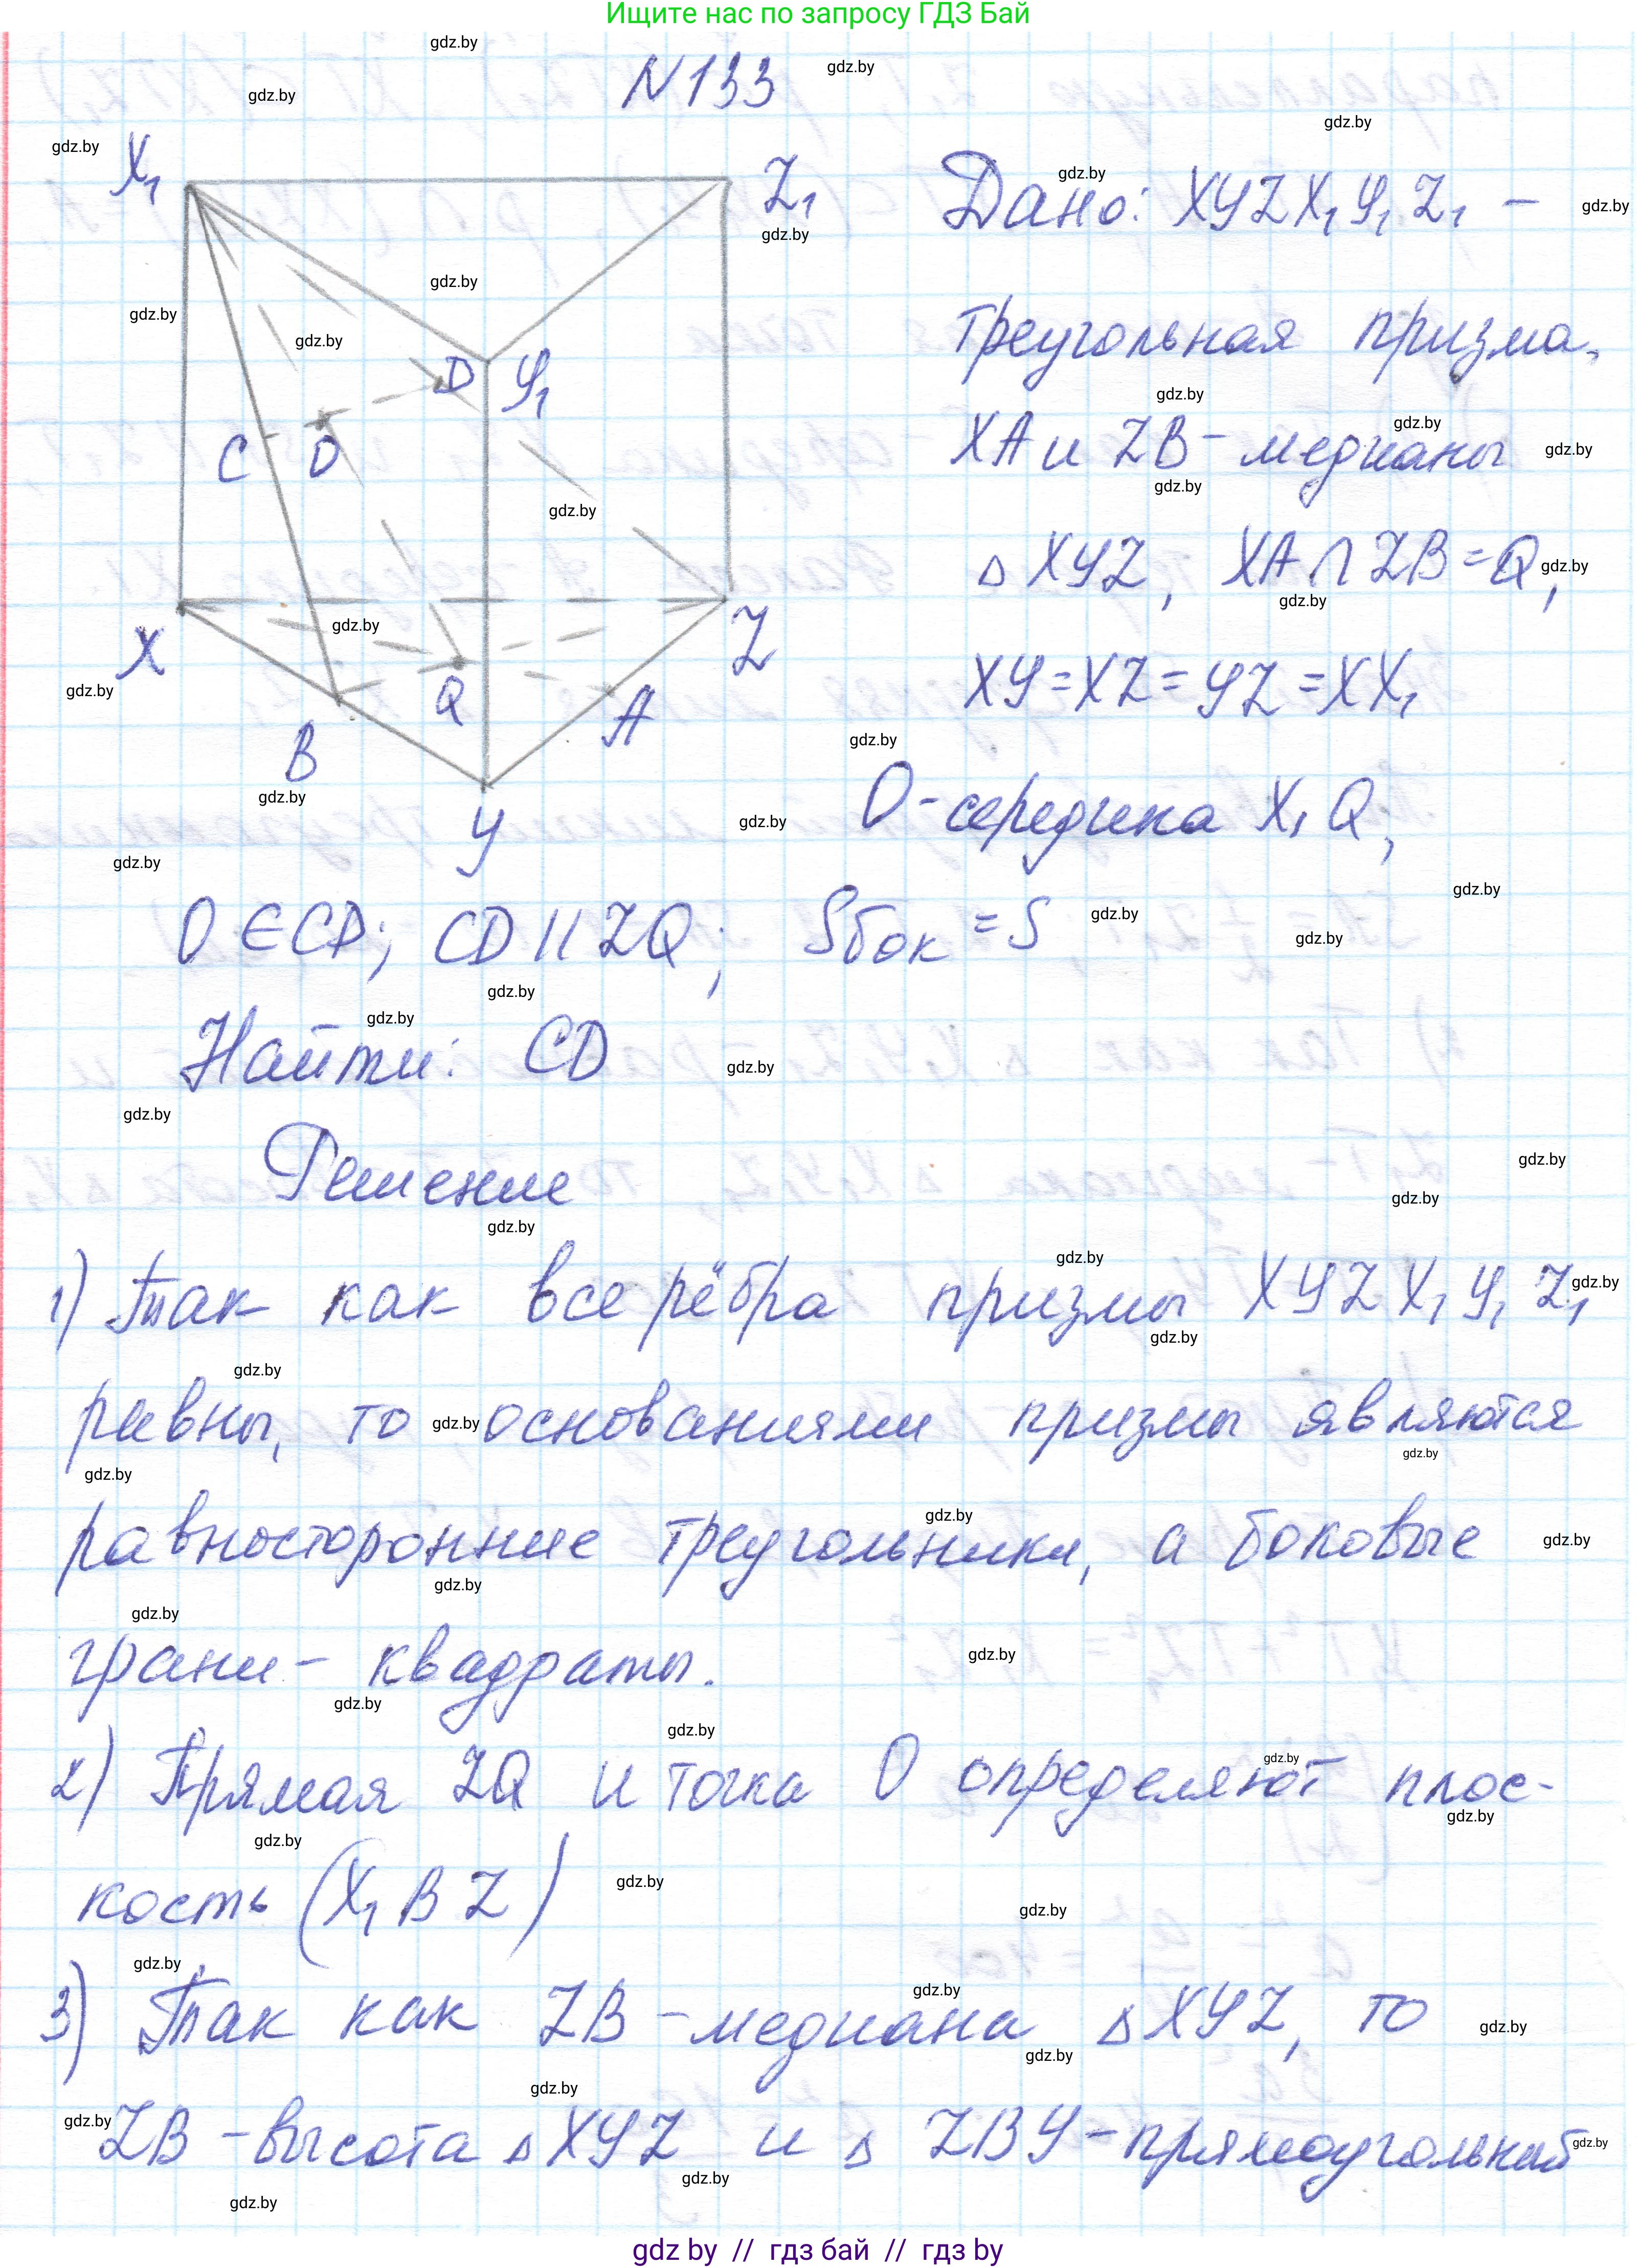 Ищите нас по запросу ГДЗ Бай
N133
X₁
Z₁
D
У₁
C
O
X
Z
Q
A
B
У
Дано: XУZX₁У₁Z₁ –
треугольная призма,
XA и ZB – медианы
△ XУZ, XA∩ZB=Q,
XУ=XZ=УZ=XX₁
O-середина X₁Q,
O∈CD; CD||ZQ; Sбок =S
Найти: CD
Решение
1) Так как все рёбра призмы XУZX₁У₁Z₁
равны, то основаниями призмы являются
равносторонние треугольники, а боковые
грани – квадраты.
2) Прямая ZQ и точка O определяют плос-
кость (X₁BZ)
3) Так как ZB – медиана △XУZ, то
ZB – высота △XУZ и △ ZBУ – прямоугольный
gdz by // гдз бай // gdz.by